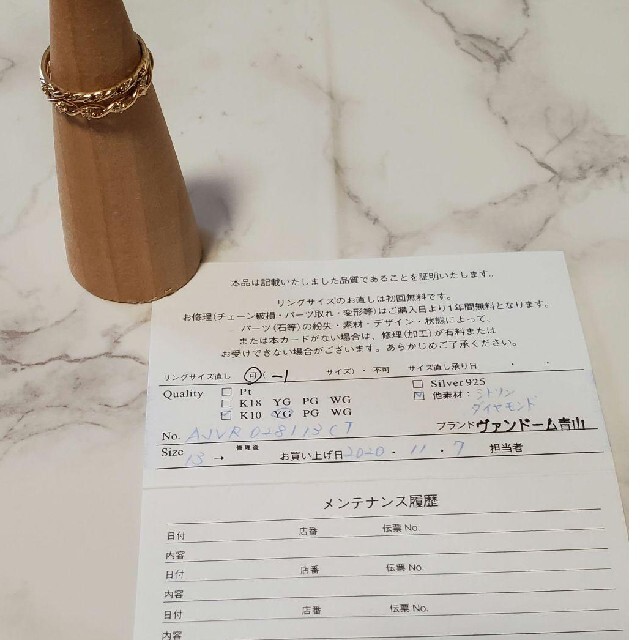 本品は記載いたしました品質であることを証明いたします。
リングサイズのお直しは初回無料です。
お修理(チェーン破損・パーツ取れ・変形等)はご購入日より1年間無料となります。
パーツ(石等)の紛失・素材・デザイン・状態によって、
または本カードがない場合は、修理(加工)が有料または
お受けできない場合がございます。あらかじめご了承ください。
リングサイズ直し 可 (-1 サイズ)・不可 サイズ直し承り日 ・ ・
Quality Pt Silver925
K18 YG PG WG 他素材: シトリン
K10 YG PG WG ダイヤモンド
No. AJVR028113CT ブランド ヴァンドーム青山
Size 13 → 修理後 お買い上げ日 2020・11・7 担当者
メンテナンス履歴
日付 店番 伝票No.
内容
日付 店番 伝票No.
内容
日付 店番 伝票No.
内容